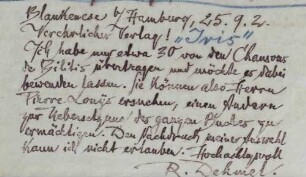 Blankenese b/Hamburg, 25.9.2.
Verehrlicher Verlag! "Iris"
Ich habe nur etwa 30 von den Chansons
de Bilitis übertragen und möchte es dabei
bewenden lassen. Sie können also Herrn
Pierre Louÿs ersuchen, einen Andern
zur Uebersetzung des ganzen Buches zu
ermächtigen. Den Nachdruck meiner Auswahl
kann ich nicht erlauben. Hochachtungsvoll
R. Dehmel.